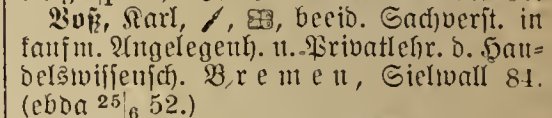 Voß, Karl, beeid. Sachverst. in
kaufm. Angelegenh. u. Privatlehr. d. Han-
delswissensch. Bremen, Sielwall 84.
(ebda 25|6 52.)